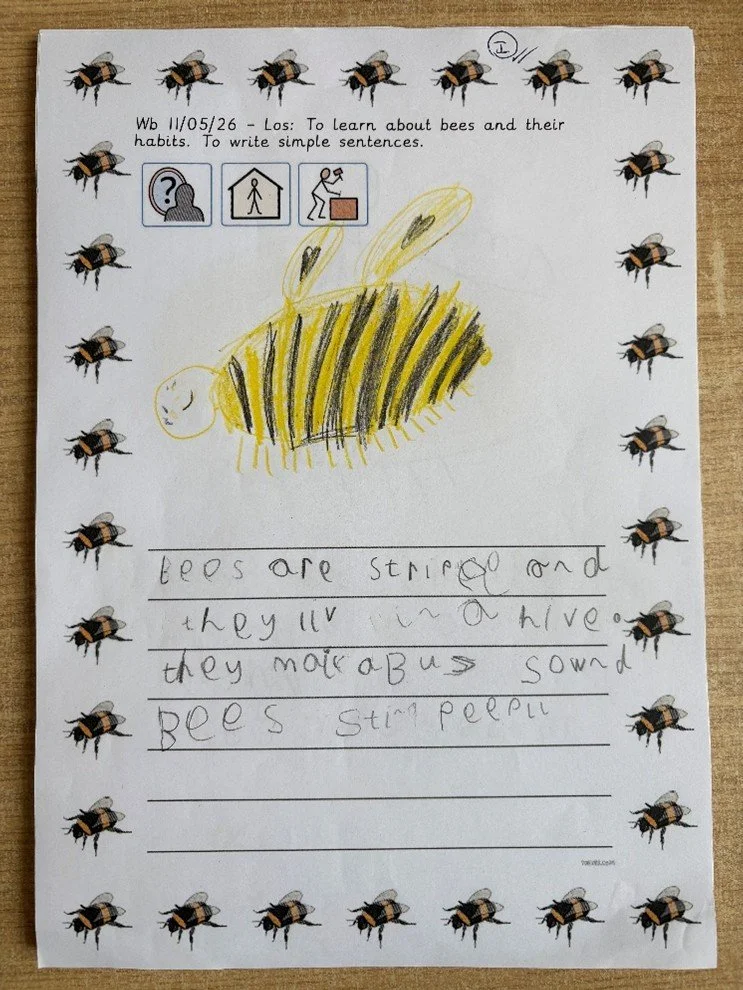 I
Wb 11/05/26 - Los: To learn about bees and their
habits. To write simple sentences.
?
Bees are stripee and
they liv in a hive.
they maik a Bus sownd
BEES stin peepll